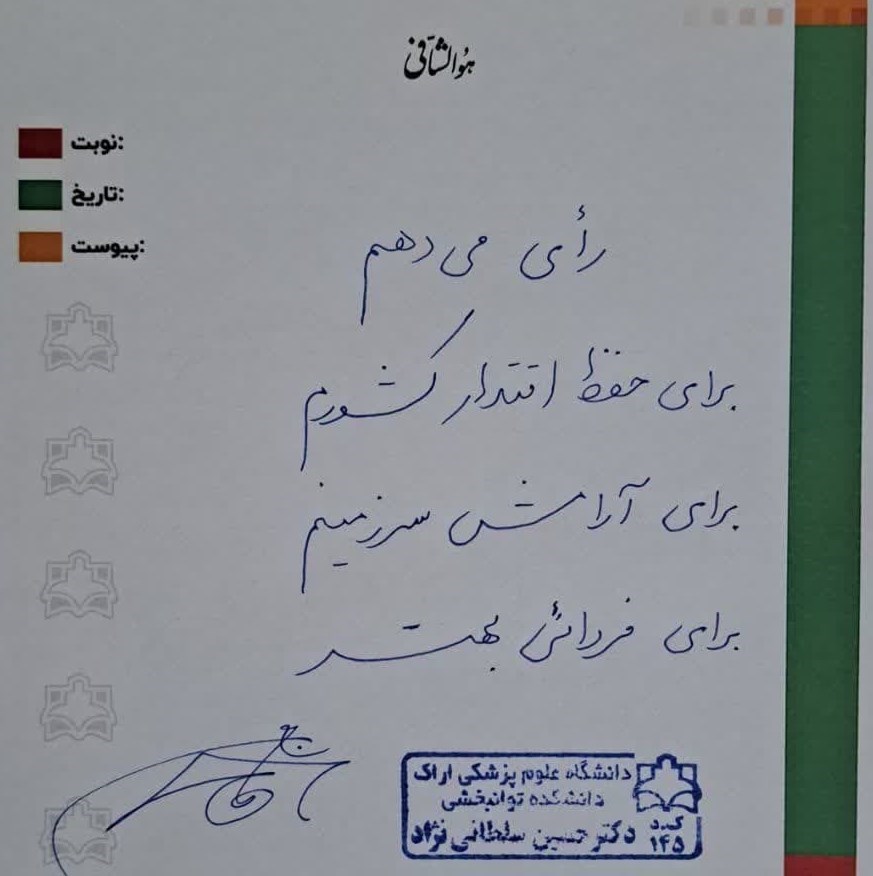 هوالشافی
نوبت:
تاریخ:
پیوست:
رأی می دهم
برای حفظ اقتدار کشورم
برای آرامش سرزمینم
برای فردائی بهتر
دانشگاه علوم پزشکی اراک
دانشکده توانبخشی
دکتر حسین سلطانی نژاد
ک.د
۱۴۵